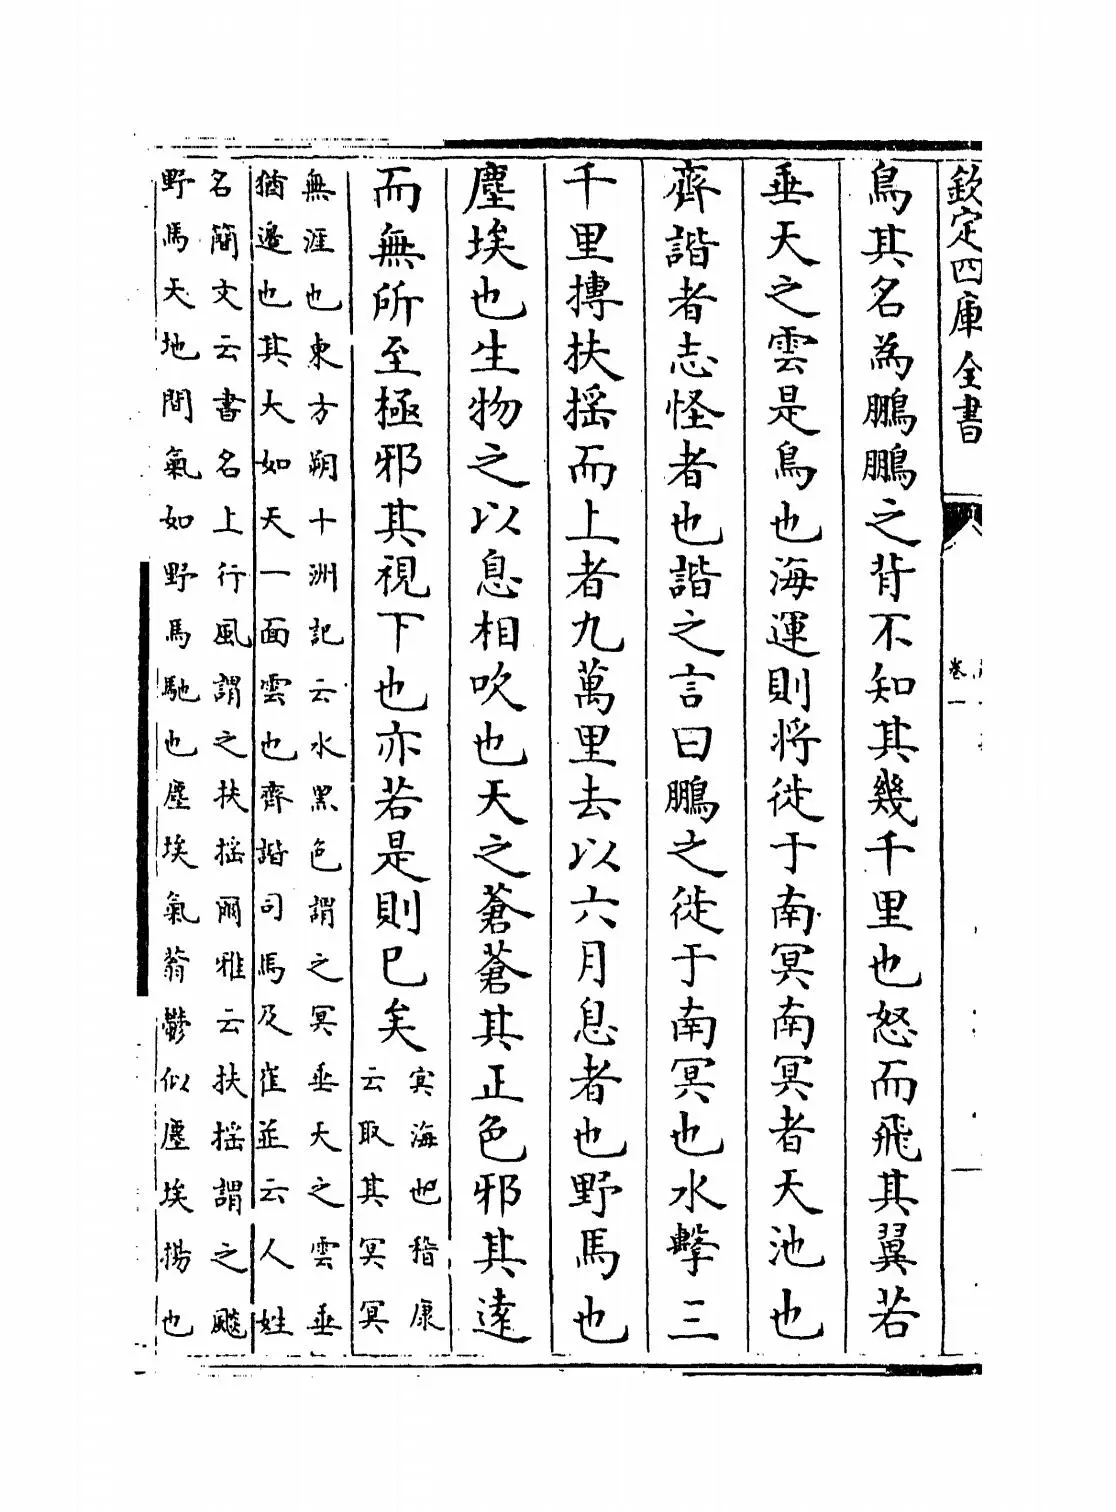 欽定四庫全書
卷一
鳥其名為鵬鵬之背不知其幾千里也怒而飛其翼若
垂天之雲是鳥也海運則將徙于南冥南冥者天池也
齊諧者志怪者也諧之言曰鵬之徙于南冥也水擊三
千里摶扶摇而上者九萬里去以六月息者也野馬也
塵埃也生物之以息相吹也天之蒼蒼其正色邪其逺
而無所至極邪其視下也亦若是則已矣
冥海也稽康
云取其冥冥
無涯也東方朔十洲記云水黑色謂之冥垂天之雲垂
猶邉也其大如天一面雲也齊諧司馬及崔並云人姓
名簡文云書名上行風謂之扶摇爾雅云扶摇謂之飈
野馬天地間氣如野馬馳也塵埃氣蓊鬱似塵埃揚也